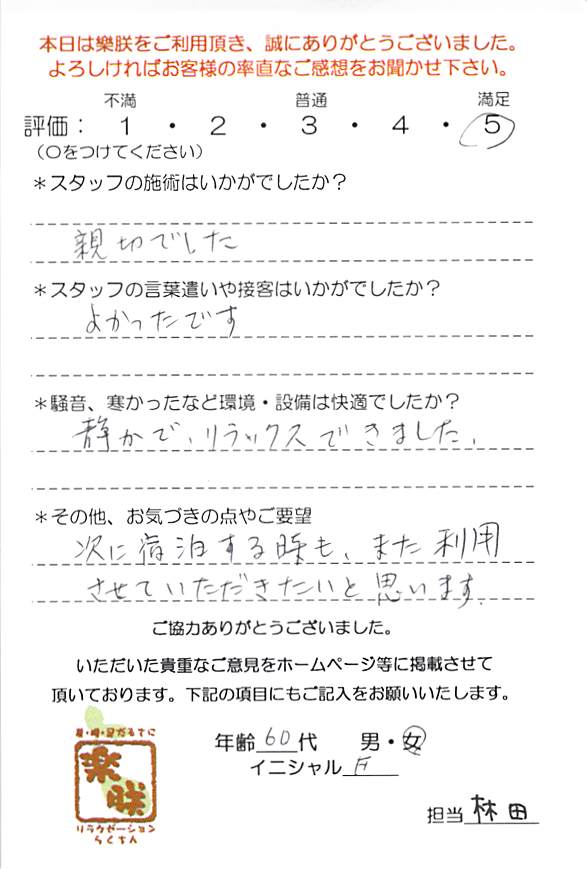 本日は樂朕をご利用頂き、誠にありがとうございました。
よろしければお客様の率直なご感想をお聞かせ下さい。
不満 普通 満足
評価： 1 ・ 2 ・ 3 ・ 4 ・ 5
（○をつけてください）
＊スタッフの施術はいかがでしたか？
親切でした
＊スタッフの言葉遣いや接客はいかがでしたか？
よかったです
＊騒音、寒かったなど環境・設備は快適でしたか？
静かで、リラックスできました。
＊その他、お気づきの点やご要望
次に宿泊する時も、また利用
させていただきたいと思います。
ご協力ありがとうございました。
いただいた貴重なご意見をホームページ等に掲載させて
頂いております。下記の項目にもご記入をお願いいたします。
年齢 60 代 男・女
イニシャル F
樂朕
リラクゼーション
らくちん
担当 林田